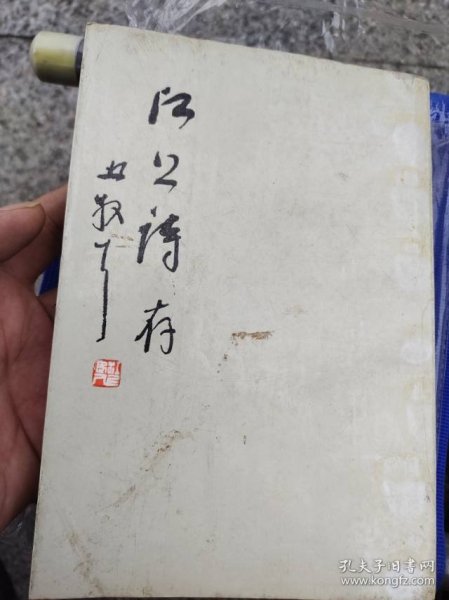 江上詩存
林散耳
孔夫子旧书网
www.kongfz.com